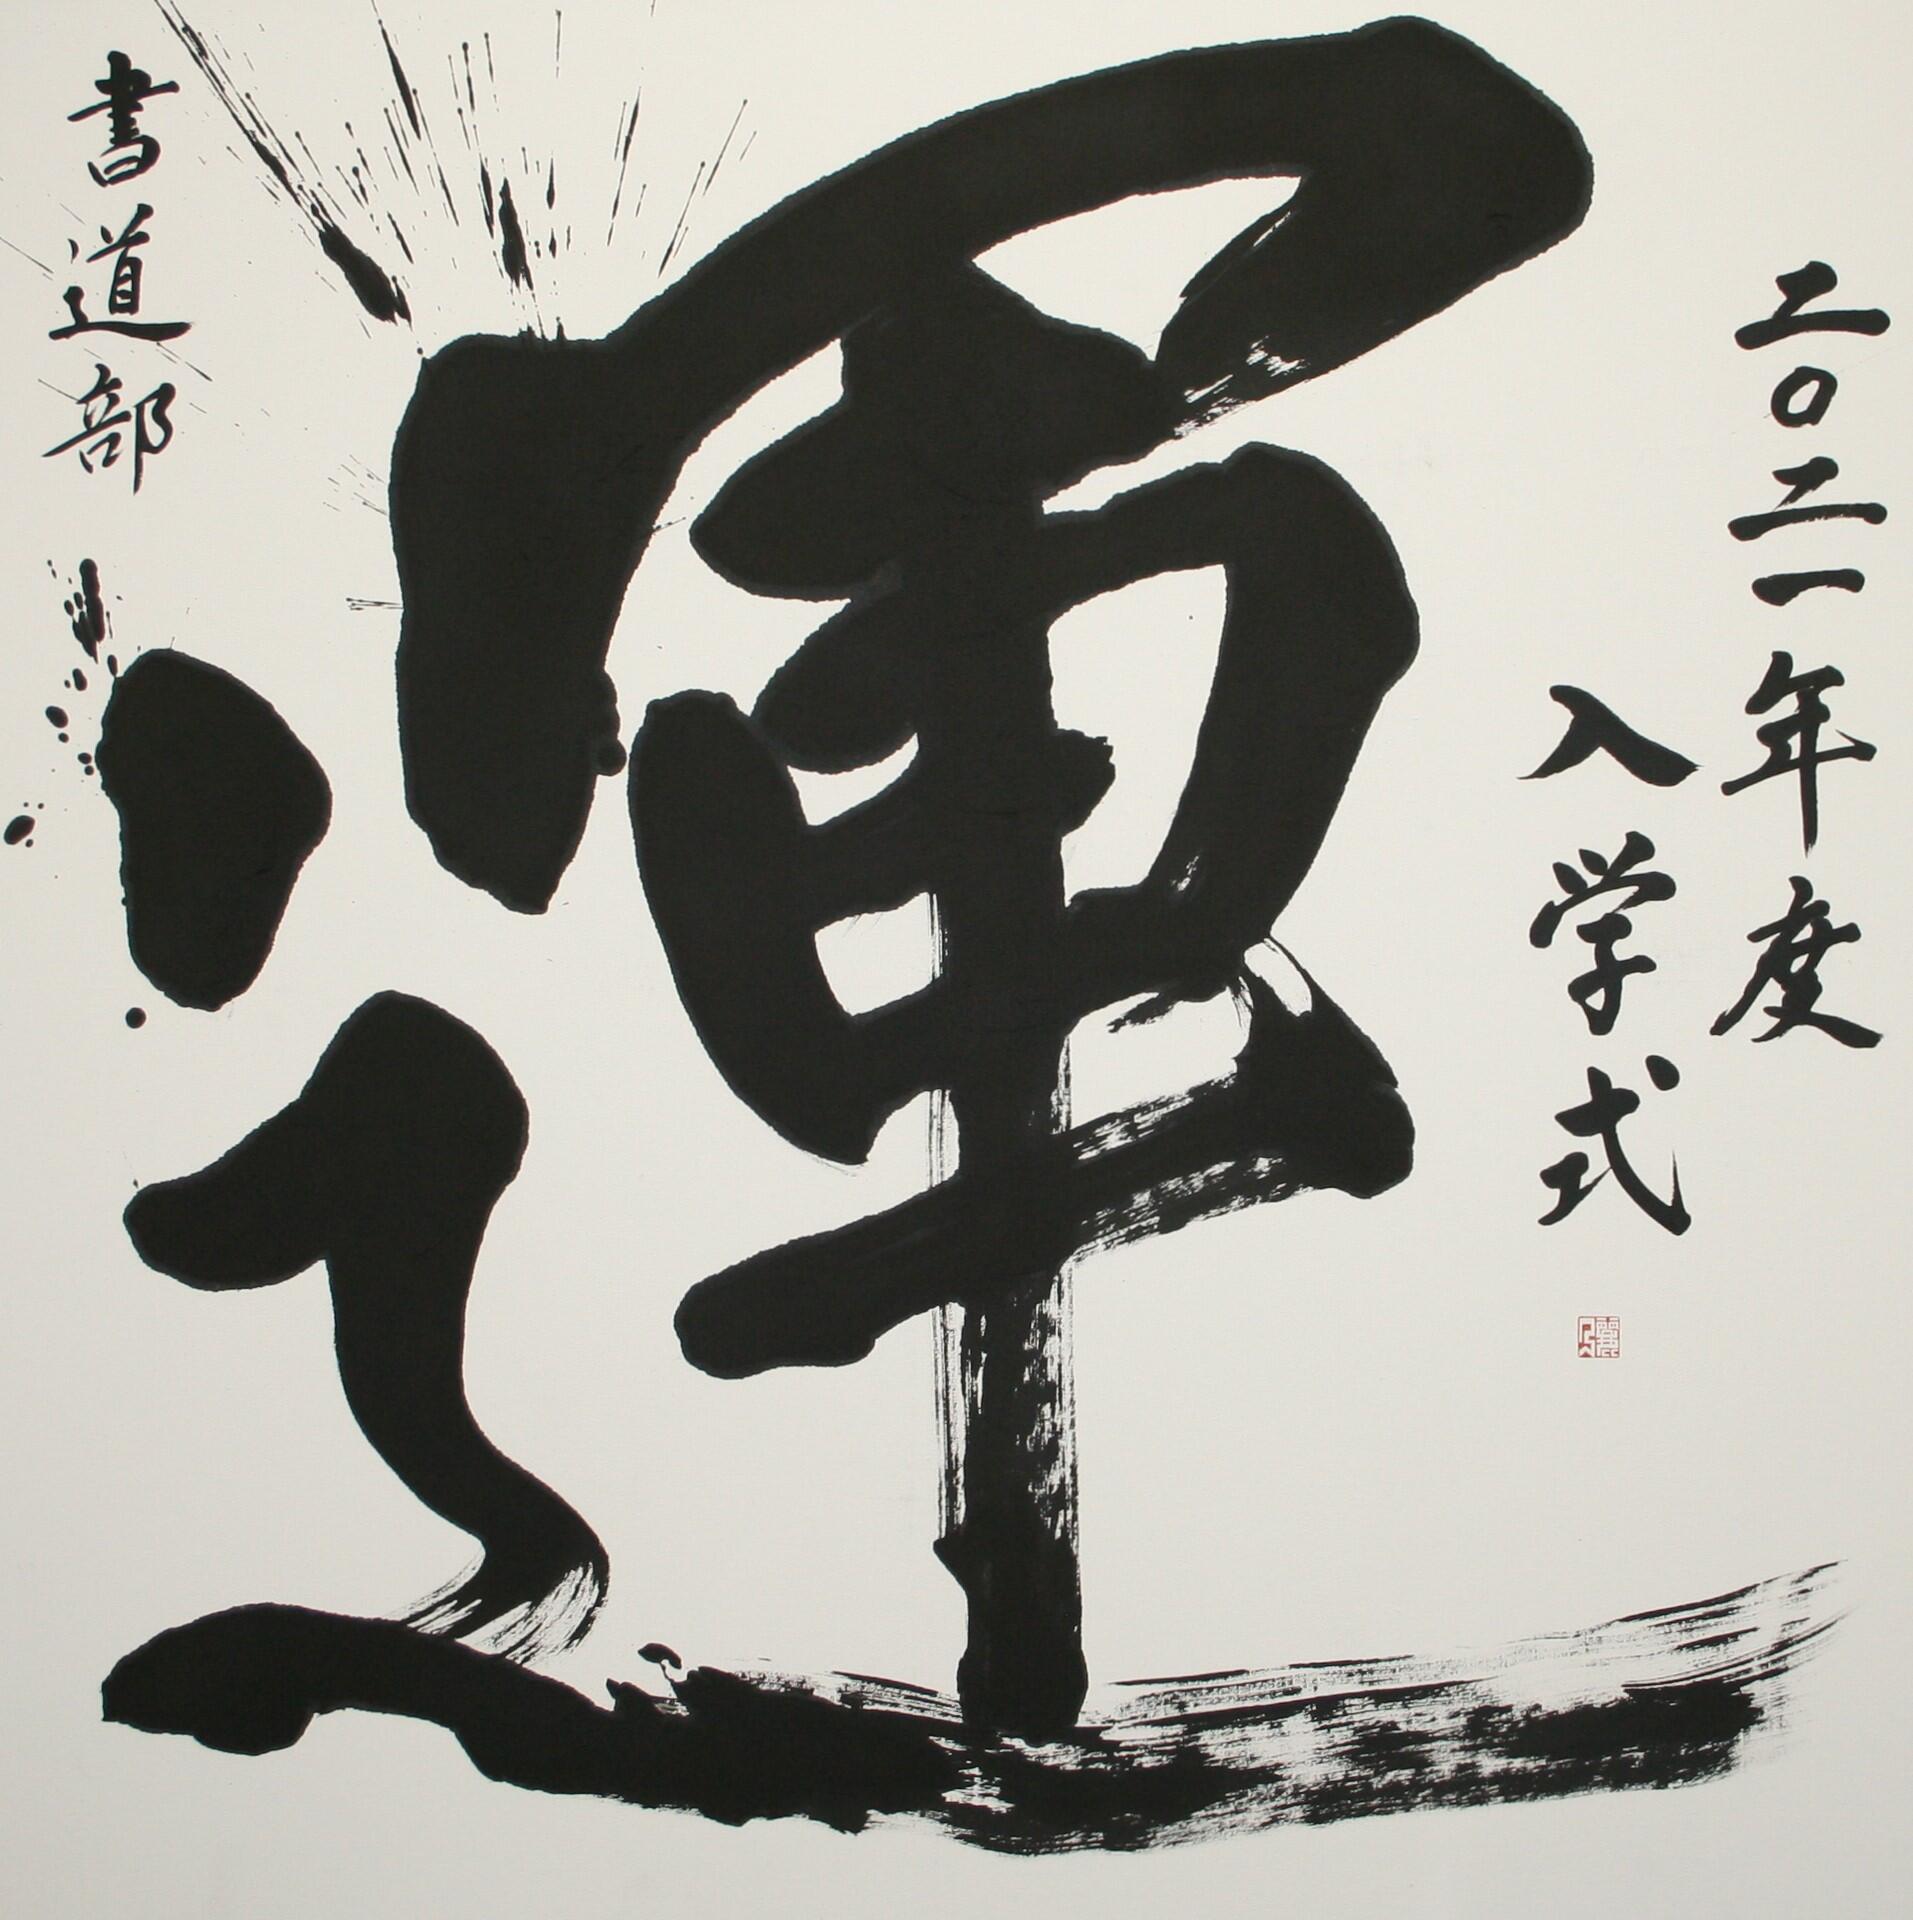 二〇二一年度
入学式
運
書道部